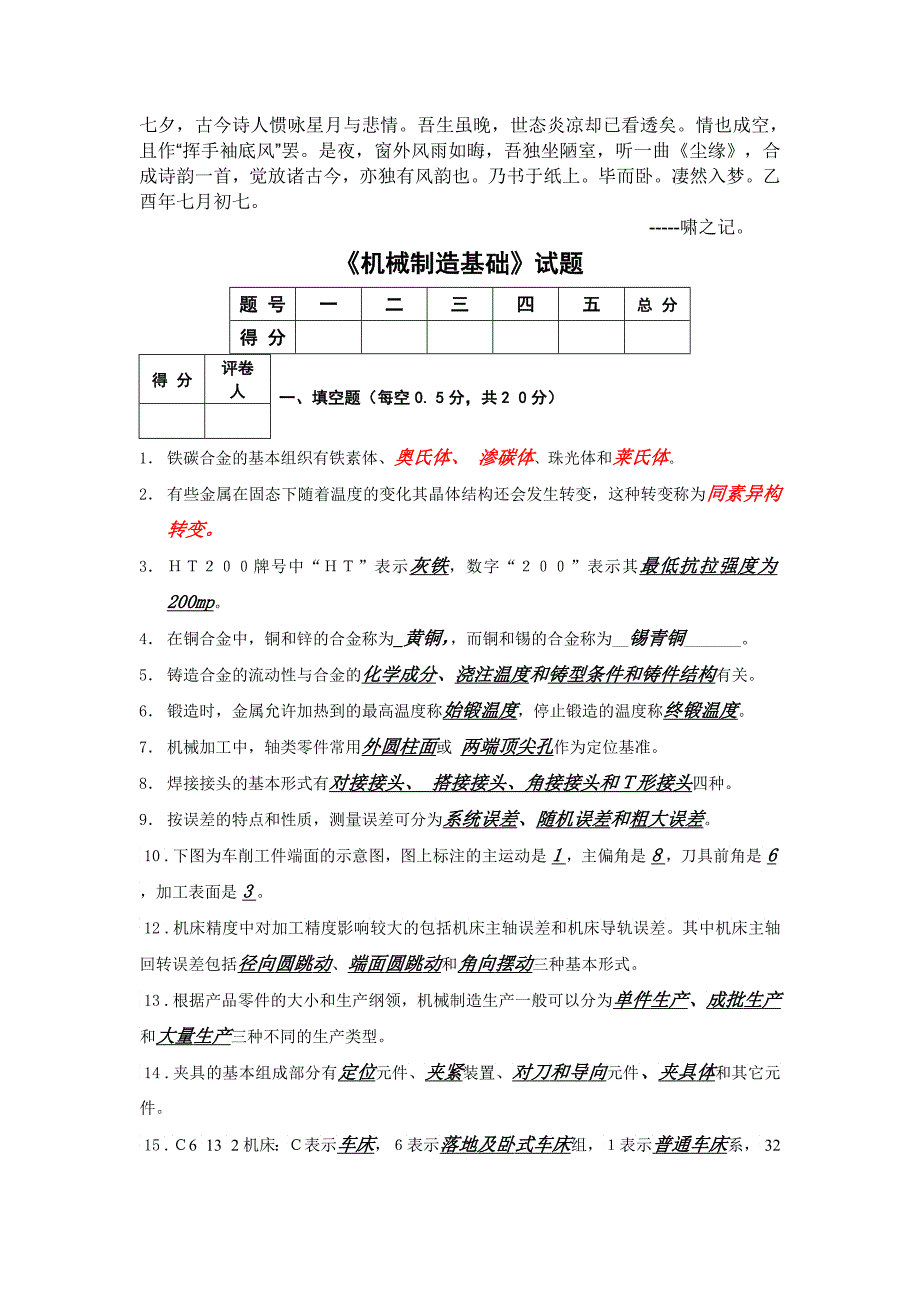 七夕，古今诗人惯咏星月与悲情。吾生虽晚，世态炎凉却已看透矣。情也成空，
且作“挥手袖底风”罢。是夜，窗外风雨如晦，吾独坐陋室，听一曲《尘缘》，合
成诗韵一首，觉放诸古今，亦独有风韵也。乃书于纸上。毕而卧。凄然入梦。乙
酉年七月初七。
-----啸之记。
《机械制造基础》试题
题 号 一 二 三 四 五 总 分
得 分
得 分 评卷人
一、填空题（每空0.5分，共20分）
1. 铁碳合金的基本组织有铁素体、奥氏体、 渗碳体、珠光体和莱氏体。
2. 有些金属在固态下随着温度的变化其晶体结构还会发生转变，这种转变称为同素异构
转变。
3. ＨＴ２００牌号中“ＨＴ”表示灰铁，数字“２００”表示其最低抗拉强度为
200mp。
4. 在铜合金中，铜和锌的合金称为_黄铜，，而铜和锡的合金称为__锡青铜_______。
5. 铸造合金的流动性与合金的化学成分、浇注温度和铸型条件和铸件结构有关。
6. 锻造时，金属允许加热到的最高温度称始锻温度，停止锻造的温度称终锻温度。
7. 机械加工中，轴类零件常用外圆柱面或 两端顶尖孔作为定位基准。
8. 焊接接头的基本形式有对接接头、 搭接接头、角接接头和Ｔ形接头四种。
9. 按误差的特点和性质，测量误差可分为系统误差、随机误差和粗大误差。
10.下图为车削工件端面的示意图，图上标注的主运动是１，主偏角是８，刀具前角是６
，加工表面是３。
12.机床精度中对加工精度影响较大的包括机床主轴误差和机床导轨误差。其中机床主轴
回转误差包括径向圆跳动、端面圆跳动和角向摆动三种基本形式。
13.根据产品零件的大小和生产纲领，机械制造生产一般可以分为单件生产、成批生产
和大量生产三种不同的生产类型。
14.夹具的基本组成部分有定位元件、夹紧装置、对刀和导向元件、夹具体和其它元
件。
15.C6 13 2机床：C表示车床， 6表示落地及卧式车床组， 1表示普通车床系， 32